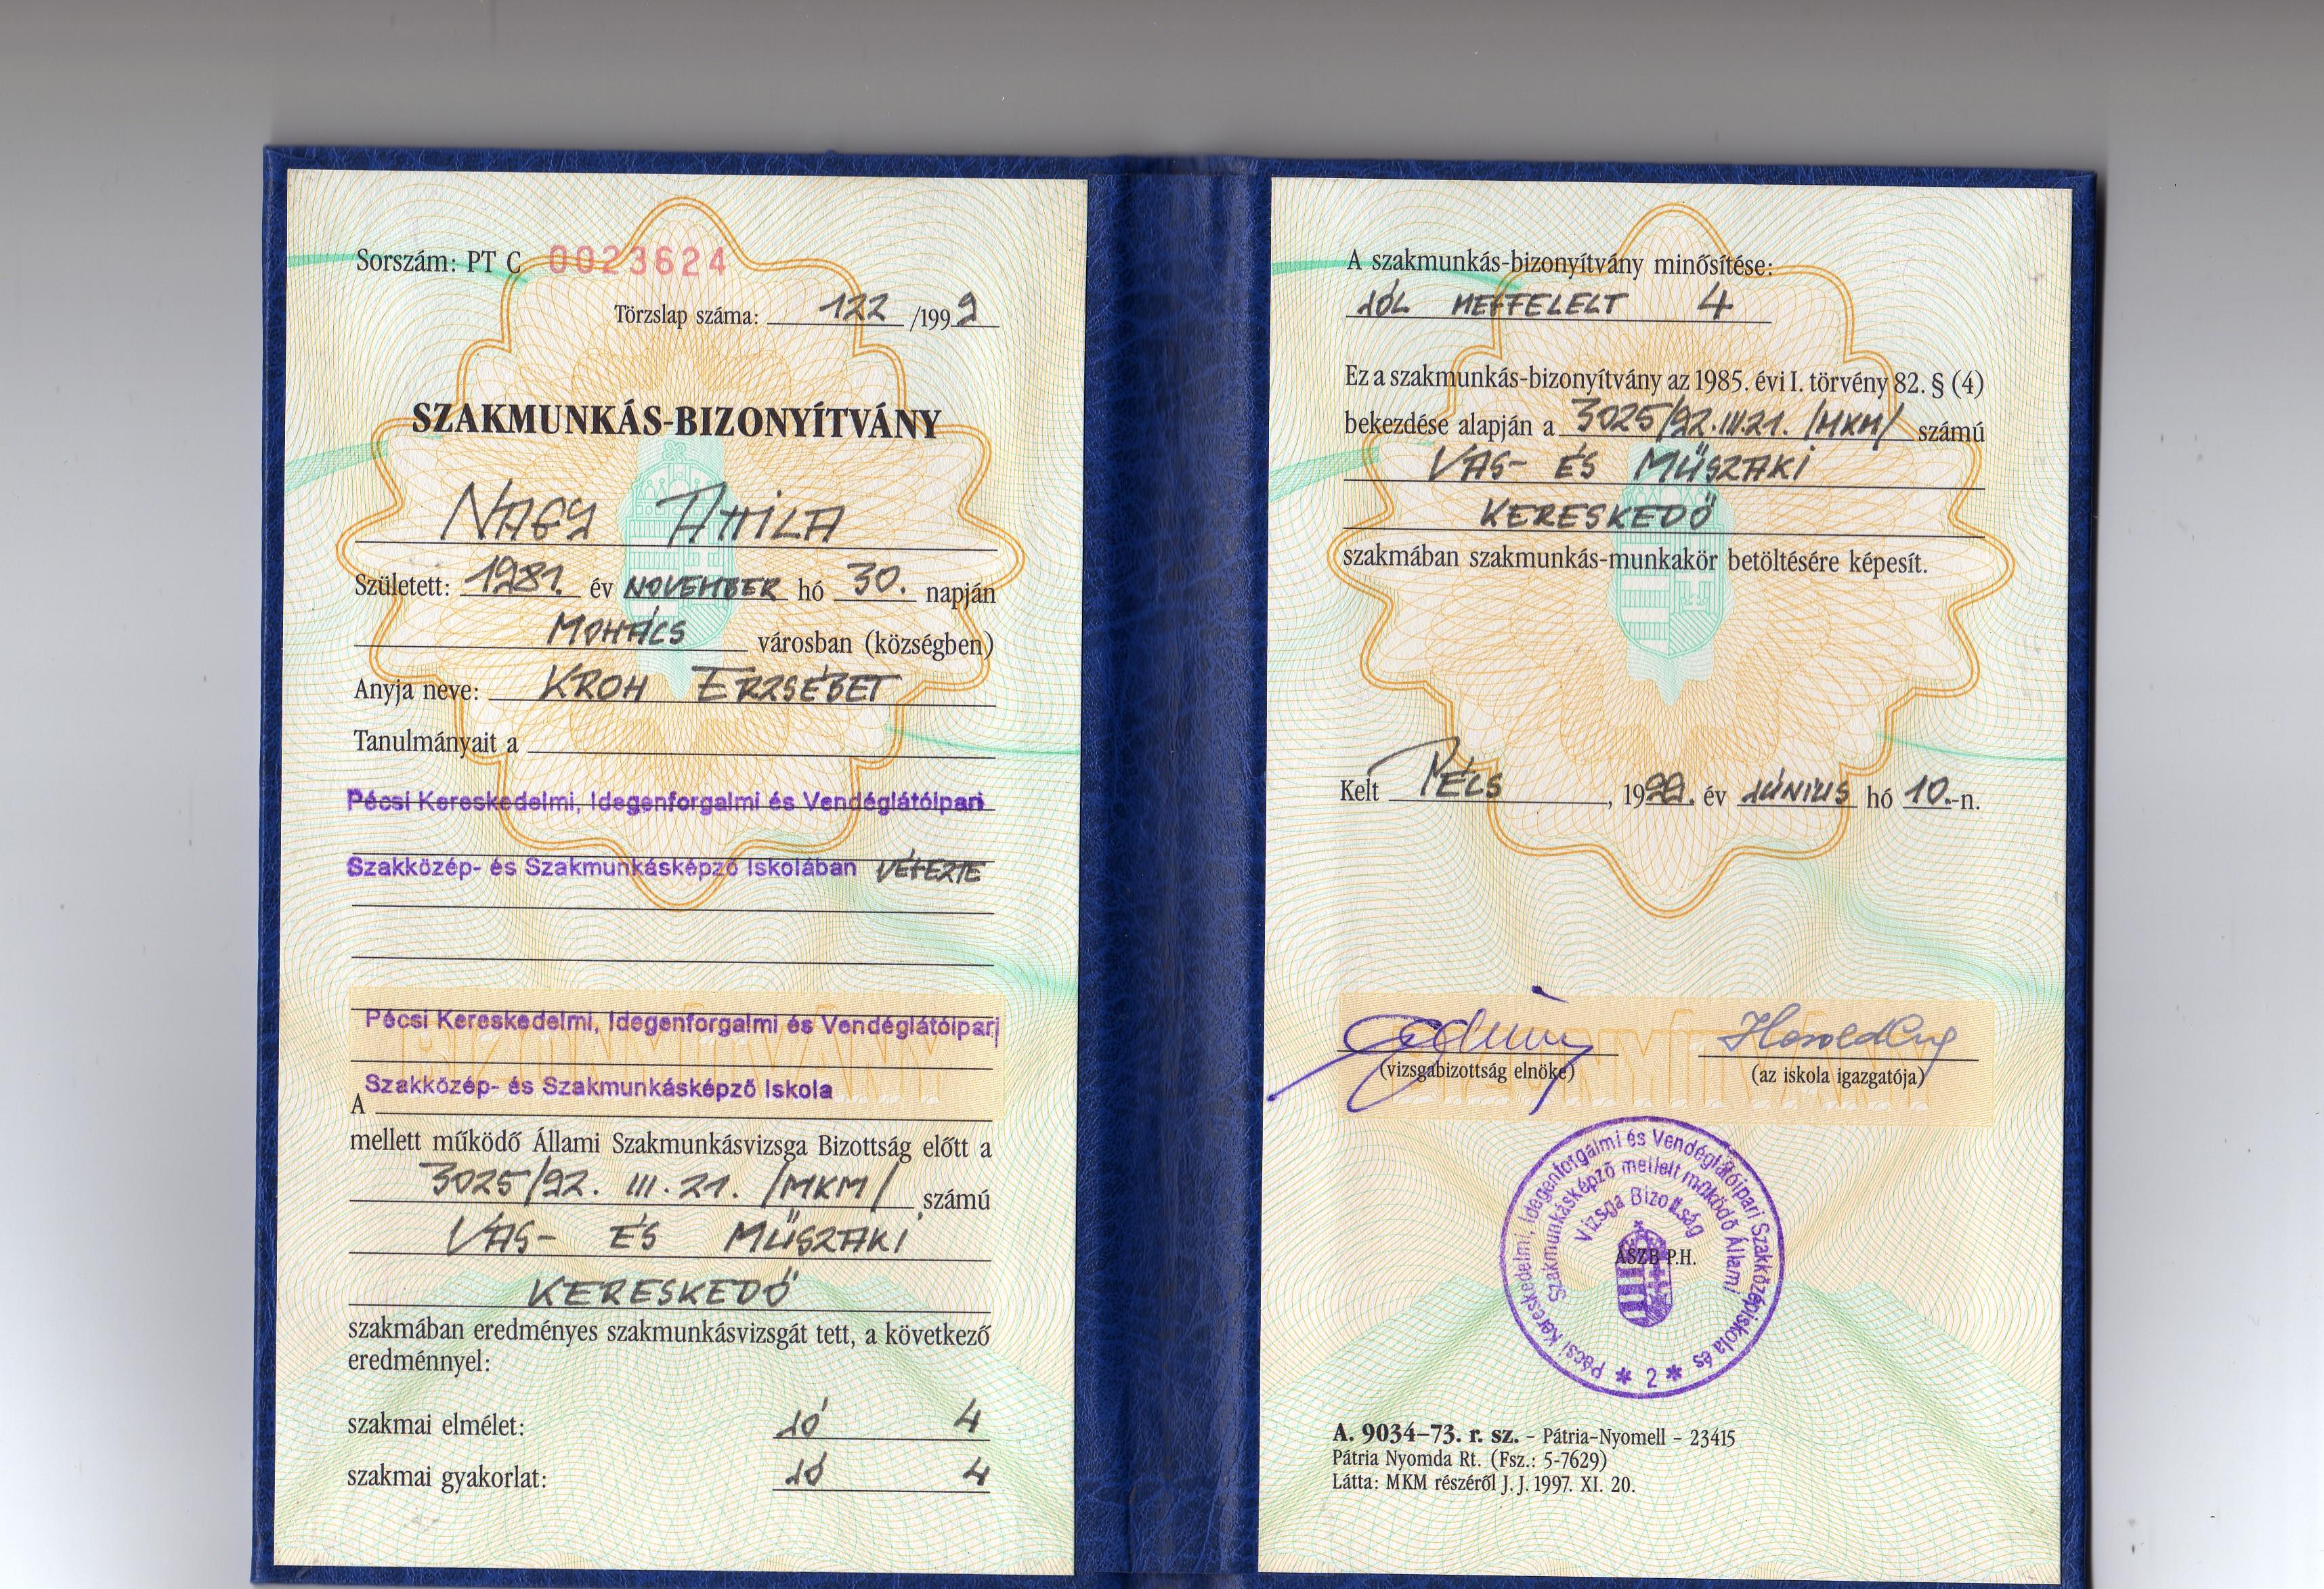 Sorszám: PT C 0023624
Törzslap száma: 122 /1999
SZAKMUNKÁS-BIZONYÍTVÁNY
NAGY ATTILA
Született: 1981. év NOVEMBER hó 30. napján
MOHÁCS városban (községben)
Anyja neve: KROH ERZSÉBET
Tanulmányait a
Pécsi Kereskedelmi, Idegenforgalmi és Vendéglátóipari
Szakközép- és Szakmunkásképző Iskolában VÉGEZTE
Pécsi Kereskedelmi, Idegenforgalmi és Vendéglátóipari
Szakközép- és Szakmunkásképző Iskola
A
mellett működő Állami Szakmunkásvizsga Bizottság előtt a
3025/92. III. 21. /MKM/ számú
VAS- ÉS MŰSZAKI
KERESKEDŐ
szakmában eredményes szakmunkásvizsgát tett, a következő
eredménnyel:
szakmai elmélet: JÓ 4
szakmai gyakorlat: JÓ 4
A szakmunkás-bizonyítvány minősítése:
JÓL MEGFELELT 4
Ez a szakmunkás-bizonyítvány az 1985. évi I. törvény 82. § (4)
bekezdése alapján a 3025/92.III.21. /MKM/ számú
VAS- ÉS MŰSZAKI
KERESKEDŐ
szakmában szakmunkás-munkakör betöltésére képesít.
Kelt PÉCS, 1999. év JÚNIUS hó 10.-n.
(vizsgabizottság elnöke) (az iskola igazgatója)
Pécsi Kereskedelmi, Idegenforgalmi és Vendéglátóipari Szakközépiskola és
Szakmunkásképző mellett működő Állami
Vizsga Bizottság
ÁSZB P.H.
* 2 *
A. 9034–73. r. sz. – Pátria-Nyomell – 23415
Pátria Nyomda Rt. (Fsz.: 5-7629)
Látta: MKM részéről J. J. 1997. XI. 20.